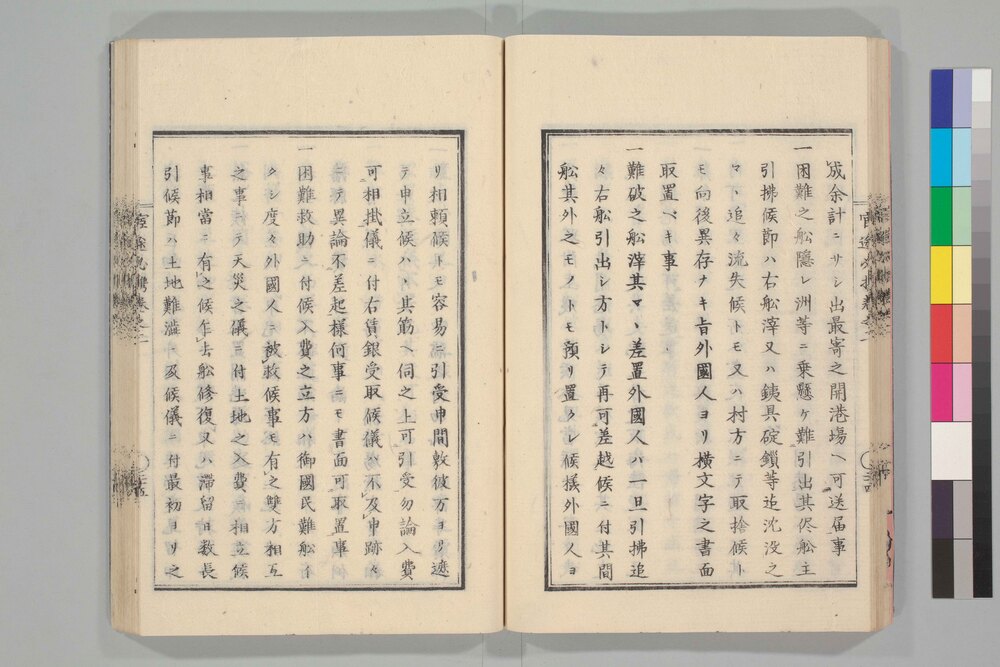 成余計ニサシ出最寄之開港場ヘ可送届事
一困難之舩隠レ洲等ニ乗懸ケ難引出其侭舩主
引拂候節ハ右舩滓又ハ銕具碇鎖等迠沈没之
マヽ追々流失候トモ又ハ村方ニテ取捨候ト
モ向後異存ナキ旨外國人ヨリ橫文字之書面
取置ベキ事
一難破之舩滓其マヽ差置外國人ハ一旦引拂追
々右舩引出シ方トシテ再可差越候ニ付其間
舩其外之モノトモ預リ置クレ候様外國人ヨ
リ相頼候トモ容易ニ引受申間敷彼方ヨリ遮
テ申立候ハヽ其筋ヘ伺之上可引受勿論入費
可相掛儀ニ付右賃銀受取候儀ハ不及申跡々
ニテ異論不差起様何事ニモ書面可取置事
一困難救助ニ付候入費之立方ハ御國民難舩イ
タシ度々外國人ニ被救候事モ有之雙方相互
之事ニテ天災之儀ニ付土地之入費ニ相立候
事相當ニ有之候乍去舩修復又ハ滞留日数長
引候節ハ土地難澁ニ及候儀ニ付最初ヨリ之